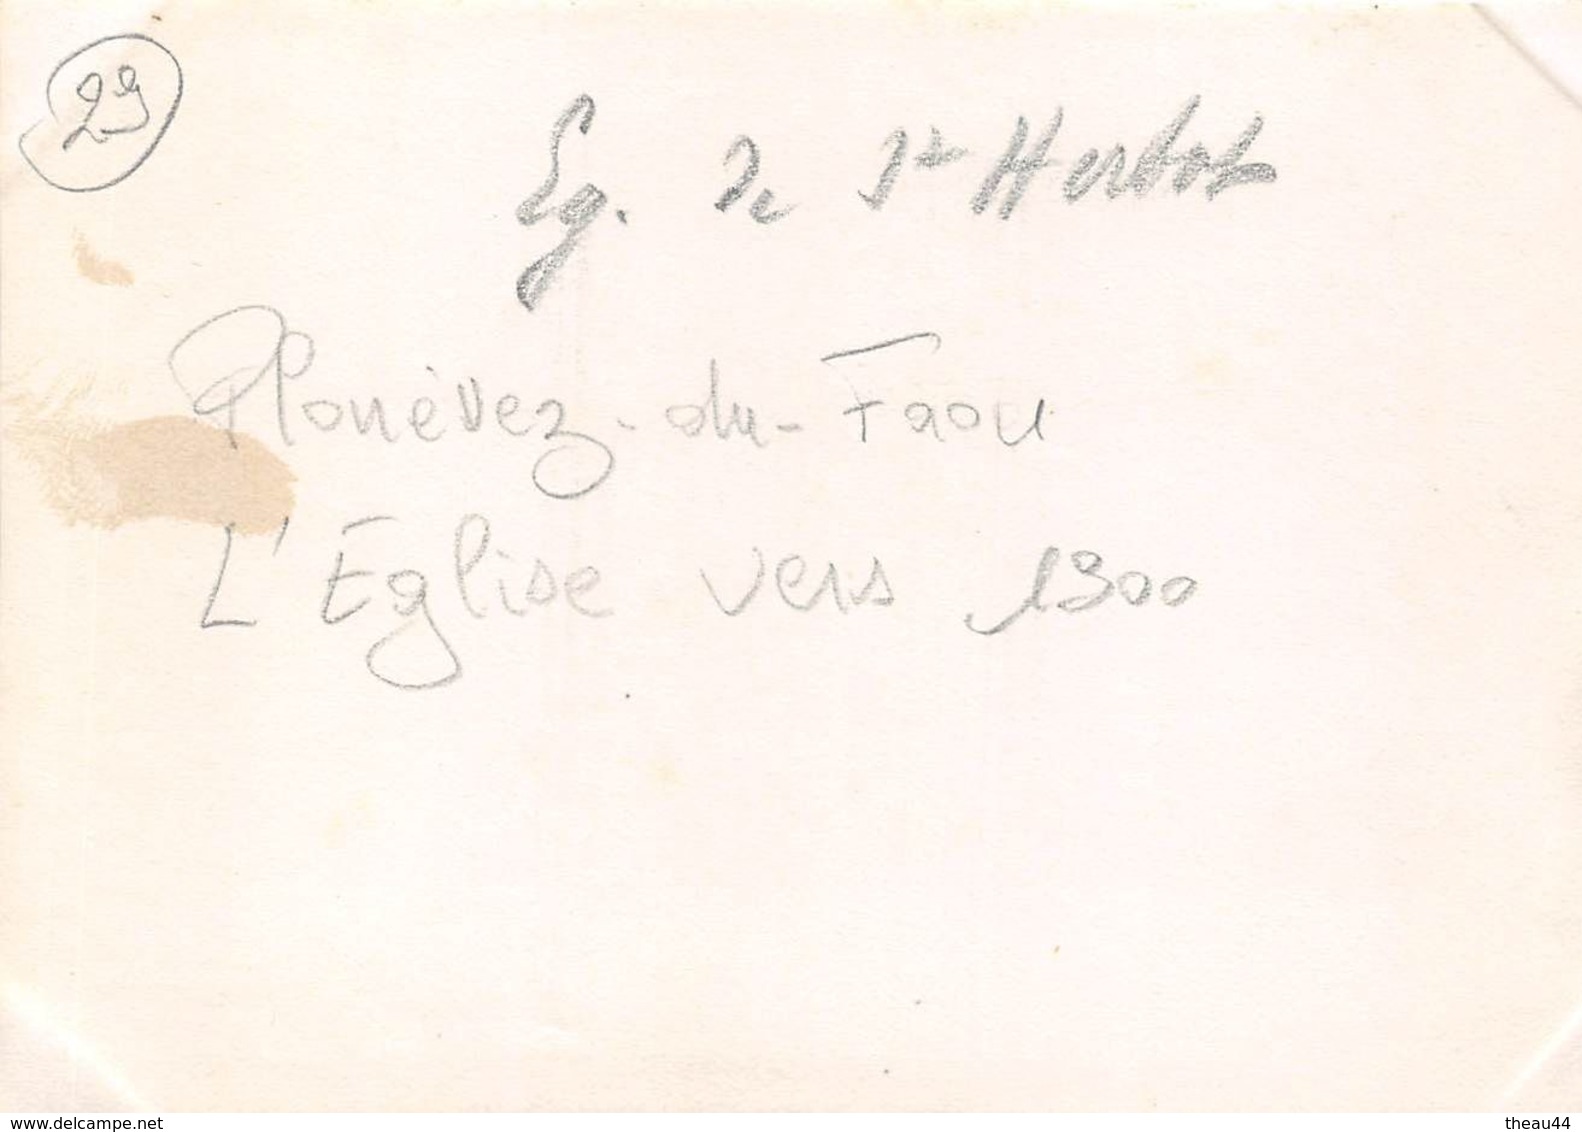 29
Eg. de St Herbot
Plonévez-du-Faou
L'Eglise vers 1900
www.delcampe.net
theau44